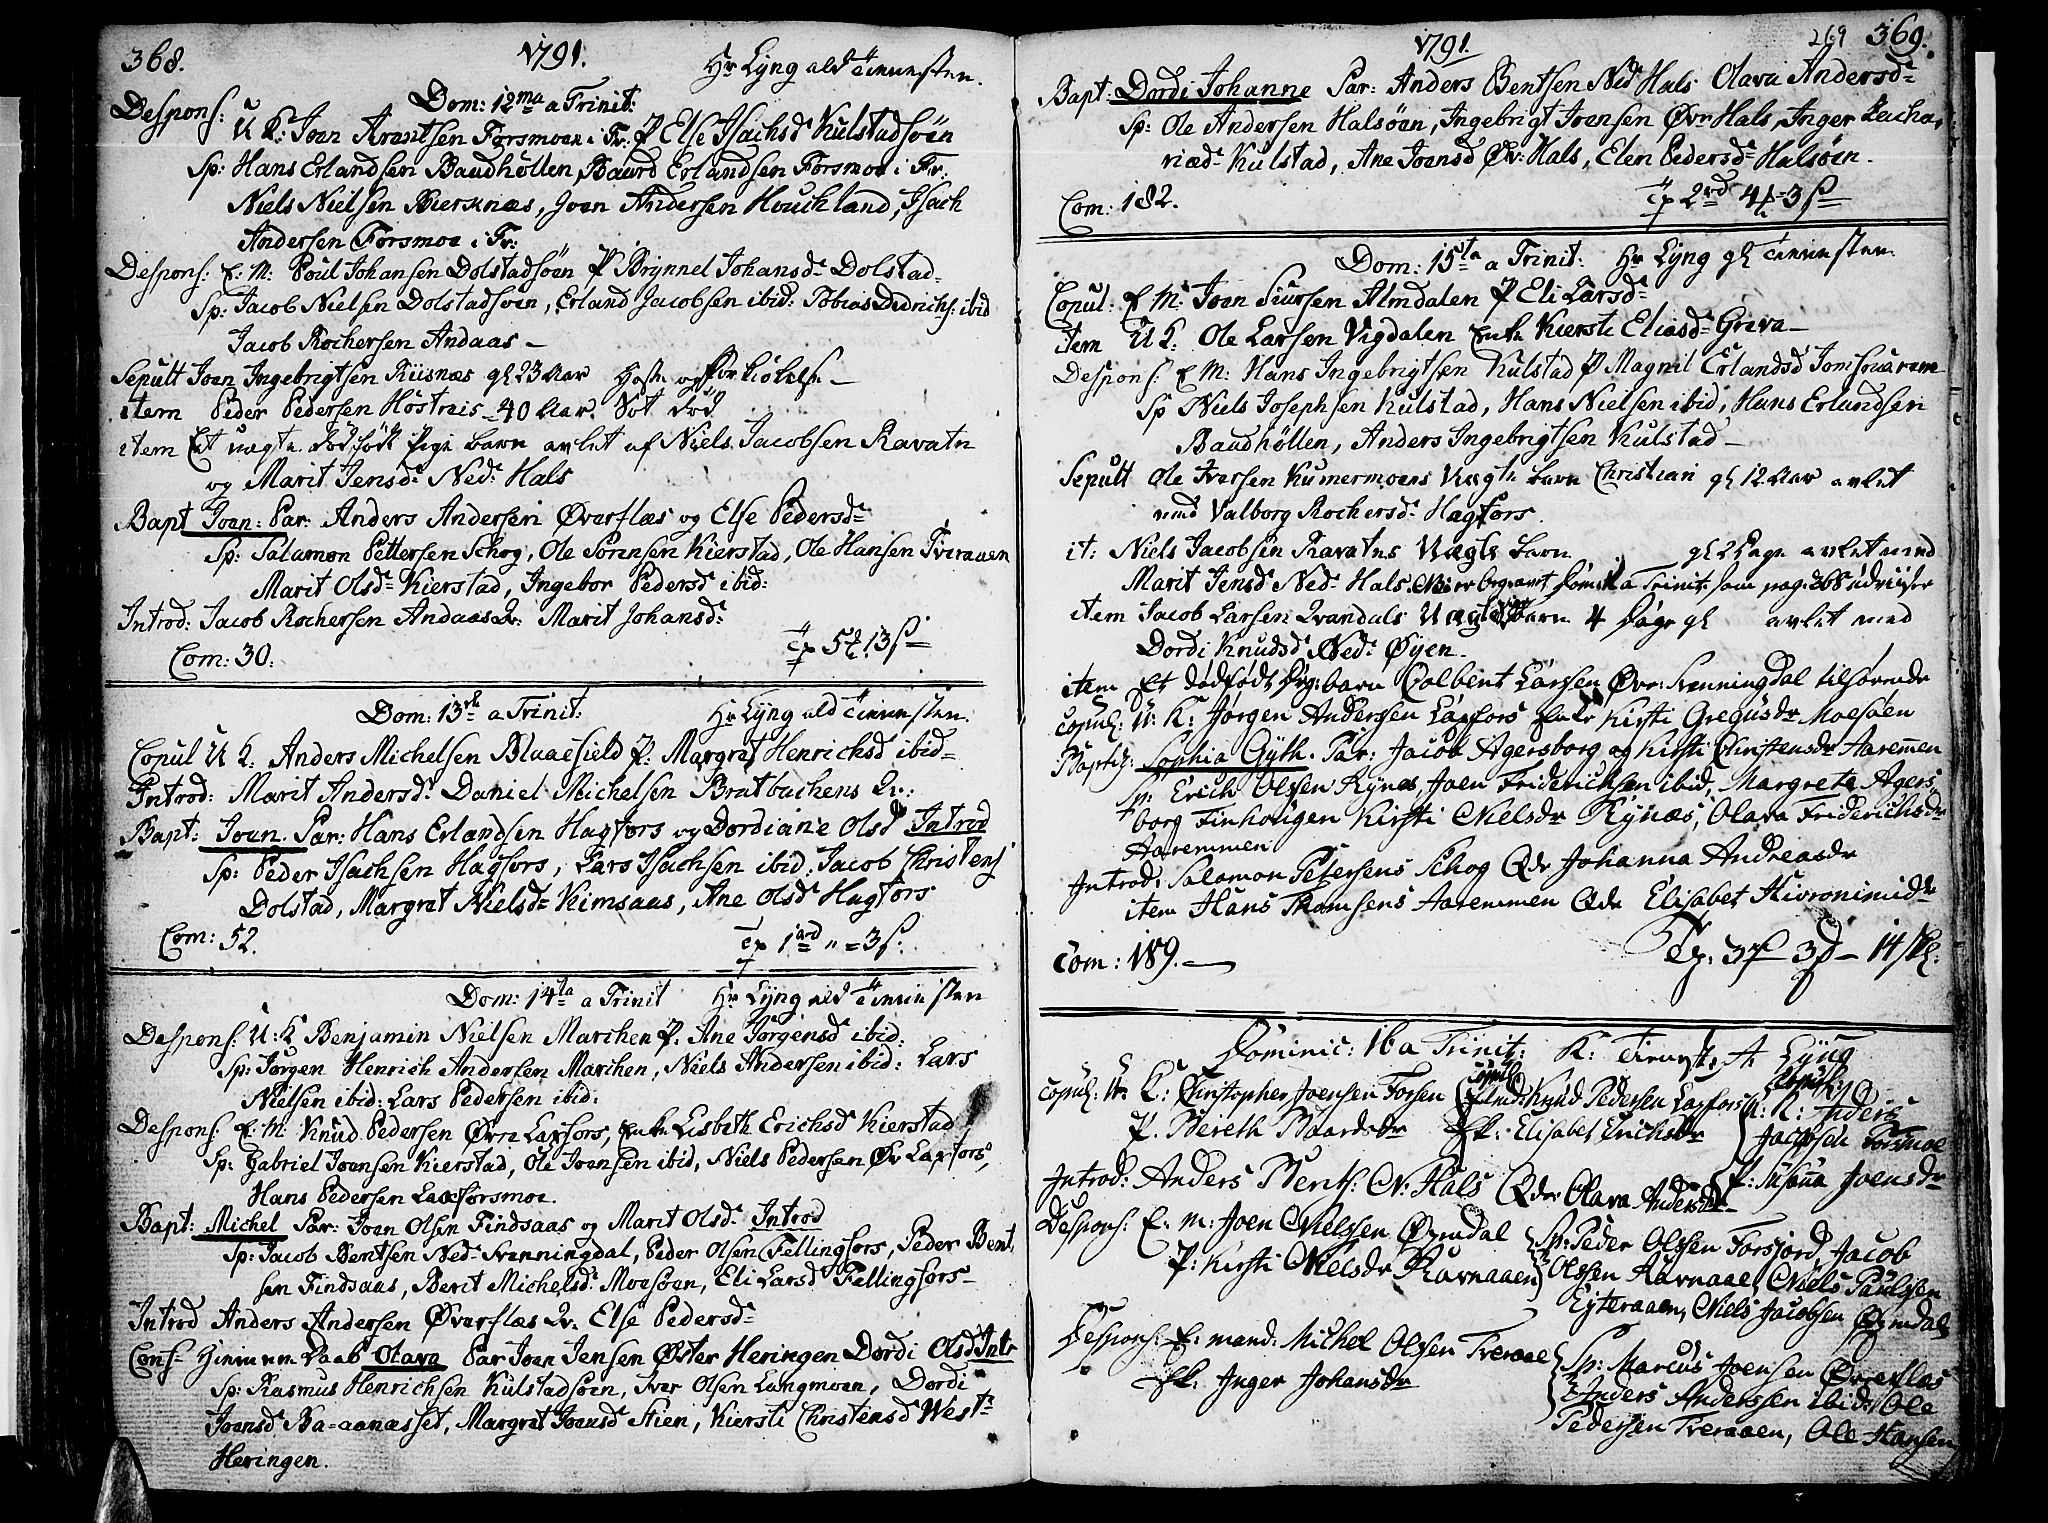 368. 1791. Hr Lyng ald Tienesten.
Dom: 12ma a Trinit:
Despons: U K: Joan Arantsen Forsmoen i Fr: P Else Isachsd Kulstadsöen
Sp: Hans Erlandsen Baudhöllen, Baurd Erlandsen Forsmoe i Fr:
Niels Nielsen Biersnæs, Joen Andersen Houchland, Isach
Andersen Forsmoe i Fr:
Despons: E: M: Poul Johansen Dolstadsöen P Brynnel Johansd: Dolstad-
Sp: Jacob Nielsen Dolstadsöen, Erland Jacobsen ibid: Tobias Dedrichs: ibid
Jacob Rochersen Andaas-
Sepult Joen Ingebrigtsen Riisnæs gl 23 Aar Hoste og
item Peder Pedersen Höstreis- 40 Aar. Sot död
item Et uægte dödfödt Pige barn avlet af Niels Jacobsen Ravatn
og Marit Jensd: Ned: Hals
Bapt Joen: Par: Anders Andersen Överflæs og Else Pedersd:
Sp: Salamon Pettersen Schog, Ole Sörensen Kierstad, Ole Hansen Tveraaen
Marit Olsd: Kierstad, Ingebor Pedersd ibid:
Introd: Jacob Rochersen Andaas Qv: Marit Johansd:
Com: 30. 13 ſ
Dom: 13de a Trinit: Hr Lyng ald Tienesten.
Copul U K. Anders Michelsen Bluaefield P: Margret Henrichsd ibid-
Introd: Marit Andersd: Daniel Michelsen Bratbachens Qv:
Bapt: Joen. Par: Hans Erlandsen Hagfors og Dordiane Olsd Introd
Sp: Peder Isachsen Hagfors, Lars Isachsen ibid, Jacob Christens
Dolstad, Margret Nielsd: Kimsaas, Ane Olsd Hagfors
Com: 52. 3 ſ:
Dom: 14ta a Trinit Hr Lyng ald Tienesten
Despons: U: K Benjamin Nielsen Marchen P. Ane Jörgensd ibid:
Sp: Jörgen Henrich Andersen Marchen, Niels Andersen ibid: Lars
Nielsen ibid: Lars Pedersen ibid:
Despons: E: M: Knud Pedersen Övre Laxfors, Enke Lisbeth Erichsd Kierstad
Sp: Gabriel Joensen Kierstad, Ole Joensen ibid, Niels Pedersen Öv Laxfors,
Hans Pedersen Laxforsmoe.
Bapt: Michel Par: Joen Olsen Findsaas og Marit Olsd: Introd
Sp: Jacob Bentsen Ned: Svenningdal, Peder Olsen Fellingfors, Peder Bent,
sen Findsaas, Berit Michelsd: Moesöen, Eli Larsd Fellingfors-
Introd Anders Andersen Överflæs Qv: Else Pedersd:
Conf= Hiemmedaab Olava Par Joen Jensen Öster Heringen Dordi Olsd Intr
Sp: Rasmus Henrichsen Kulstadsöen, Iver Olsen Langmoen, Dordi
Joensd Ba-aanæsset, Margret Joensd Stien, Kiersti Christensd West-
Heringen.
1791. 269 369.
Bapt: Dordi Johanne Par: Anders Bentsen Ned Hals Olava Andersd:
Sp: Ole Andersen Halsöen, Ingebrigt Joensen Övr Hals, Inger Zacha,
riæd: Kulstad, Ane Joensd Öv: Hals, Elen Pedersd: Halsöen.
Com: 182.
Dom: 15ta a Trinit: Hr Lyng gl Tienesten.
Copul: E M: Joen Siursen Almdalen P Eli Larsd:
item U K. Ole Larsen Vigdalen Enke Kiersti Eliasd: Greva-
Despons: E M: Hans Ingebrigtsen Kulstad P Magnil Erlandsd
Sp Niels Josephsen Kulstad, Hans Nielsen ibid, Hans Erlandsen
Baudhöllen, Anders Ingebrigtsen Kulstad-
Sepult Ole Iversen Kumermoens Uægte barn Christian gl 12 Aar avlet
med Valborg Rochersd: Hagfors.
it: Niels Jacobsen Ravatns Uægte barn gl 2 Dage avlet med
Marit Jensd Ned: Hals a Trinit: som pag: 368 udviiser
item Jacob Larsen Qvandals Uægte barn 4 Dage gl avlet med
Dordi Knudsd Ned: Öyen.
item Et dödfödt barn Colbent Larsen Övr: Svenningdal tilhörende
copul: U: K: Jörgen Andersen Laxfors Enke Kirsti Gregusdr Moesöen
Baptiz: Sophia Gyth. Par: Jacob Agersborg og Kirsti Christensdr Aaremmen
Sp: Erich Olssen Rynes, Joen Friderichsen ibid, Margrete Agers,
borg Finholigen Kirsti Nielsdr Rynæs, Olava Friderichsdr
Aaremmen
Introd: Salomon Petersens Schog Qdr Johanna Andreasdr
item Hans Thomsens Aaremmen Qdr Elisabet Hieronimidr
com: 189.
Dominic: 16 a Trinit: K: Tienest: A Lyng
copul: U: K: Christopher Joensen Forsen
P. Bereth Baardsdr
Copul: Emd: Knud Pedersen Laxfors
Ek: Elisabet Erichsdr
Copul: U: K: Anders
Jacobsen Forsmoe
P: Susanna Joensdr
Introd: Anders Bents: N: Hals Qdr Olava Andersdr
Despons: E: m: Joen Nielssen Öymdal
P: Kirsti Nielsdr Ravnaaen
Sp: Peder Olssen Forsjord, Jacob
Olssen Ravnaae, Niels Paulssen
Eyteraaen, Niels Jacobsen Öymdal
Despons: E: mand: Michel Olssen Tveraae
Ek: Inger Johansdr
Sp: Marcus Joensen Överflæs
Anders Anderssen ibid: Ole
Pederssen Tveraaen, Ole Hansen